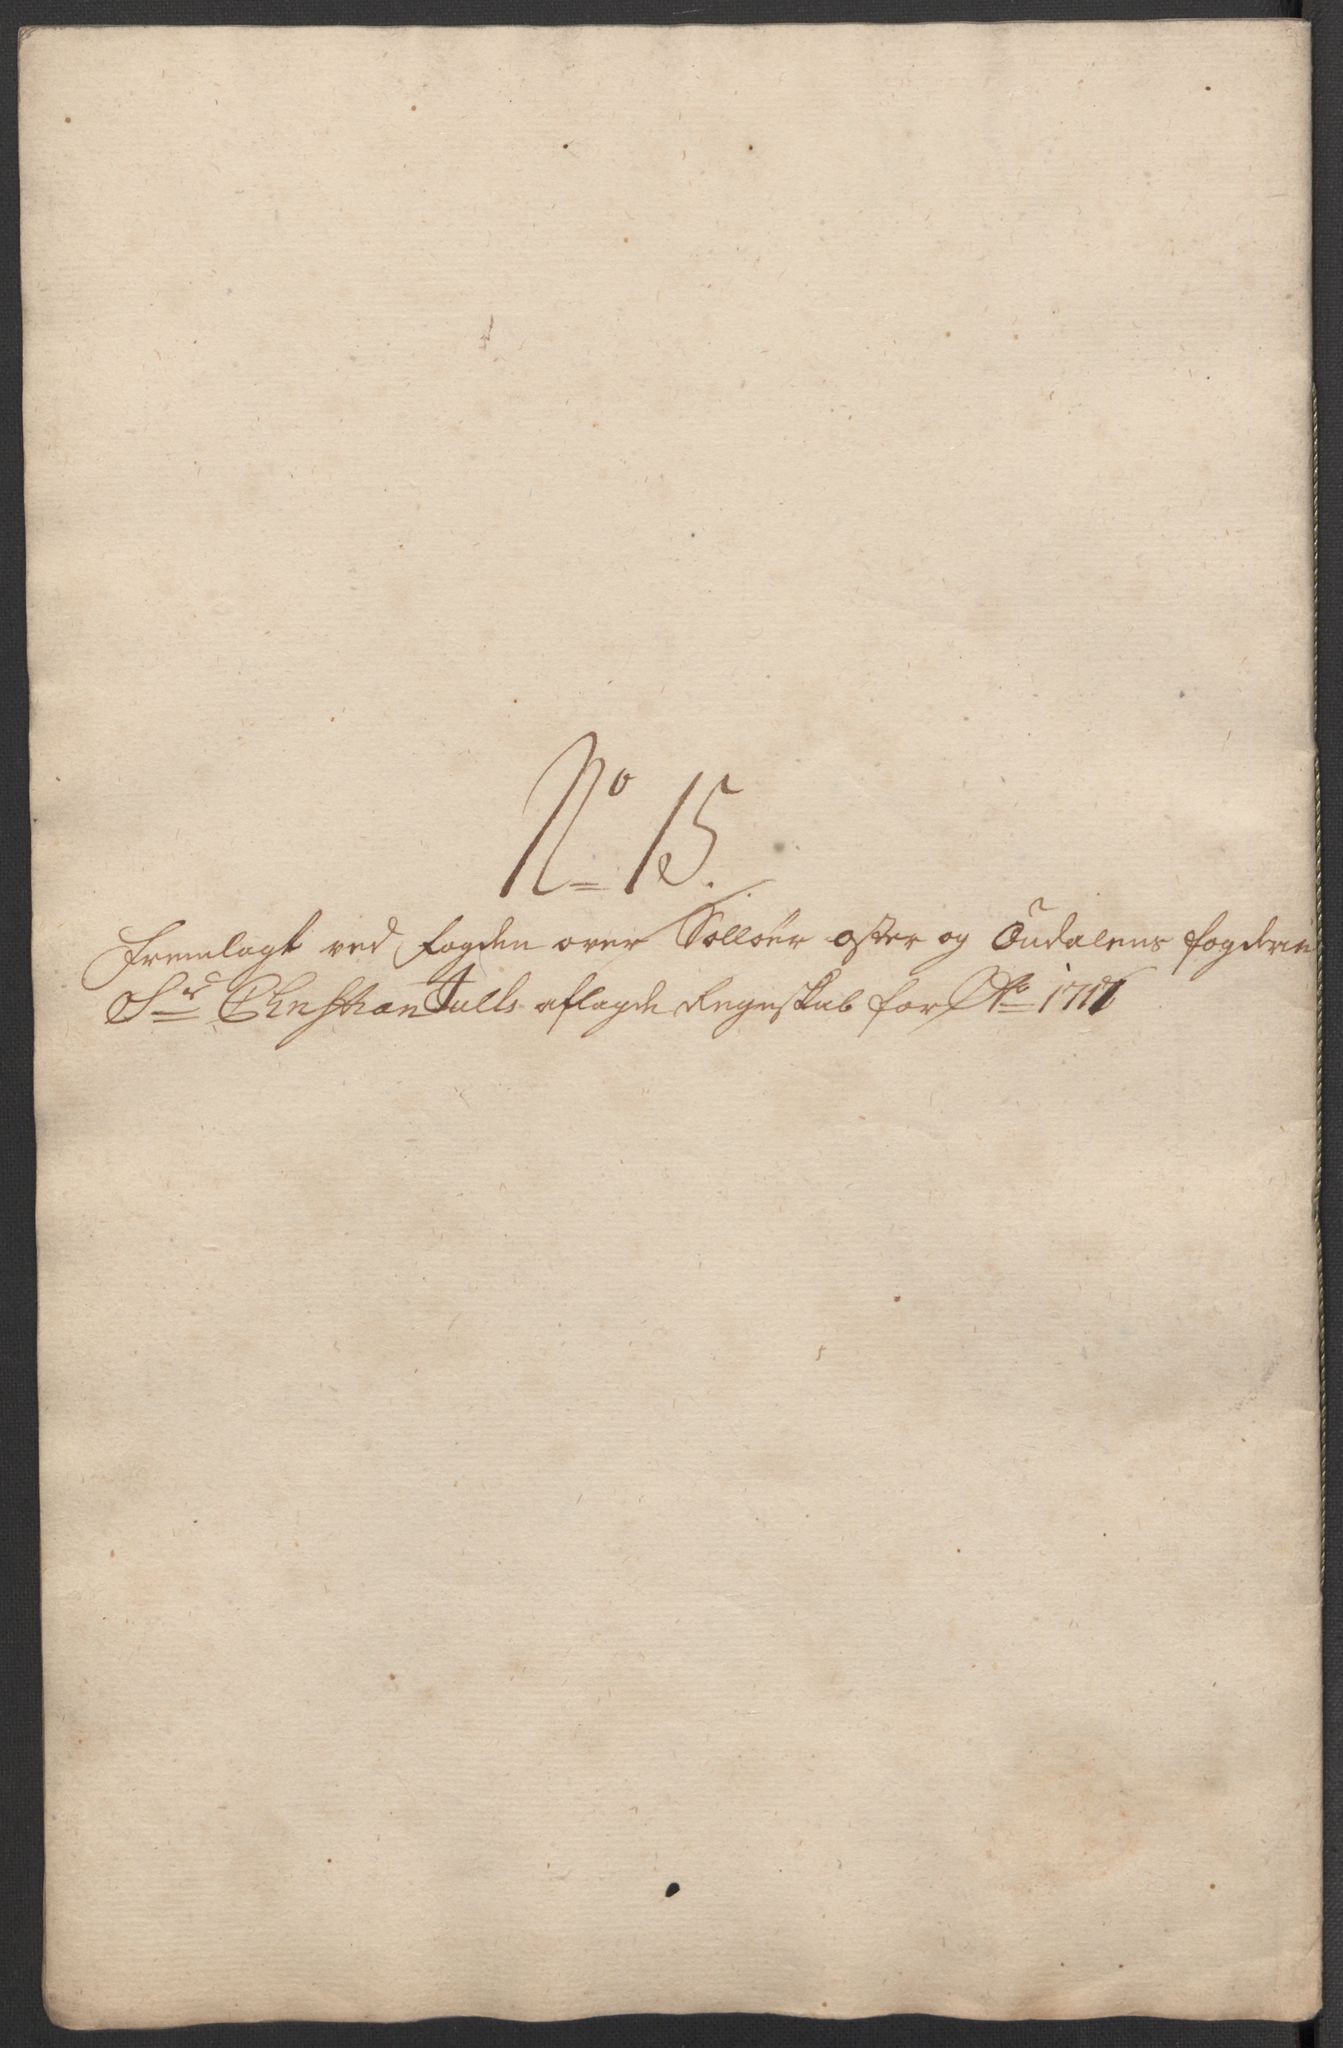 No 15.
Fremlagt ved fogden over Solløer Øster og Oudalens fogderie
Sr Christian Juells aflagde Regnskab for Ao 1717